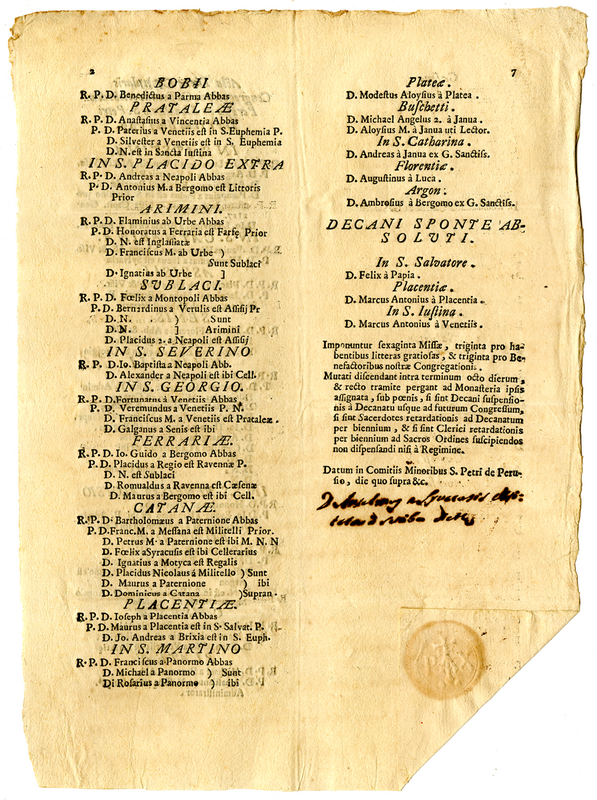 2
BOBII
R. P. D. Benedictus a Parma Abbas
PRATALEÆ
R. P. D. Anastasius a Vincentia Abbas
P. D. Paterius a Venetiis est in S. Euphemia P.
D. Silvester a Venetiis est in S. Euphemia
D. N. est in Sancta Iustina
IN S. PLACIDO EXTRA
R. P. D. Andreas a Neapoli Abbas
P. D. Antonius M. a Bergomo est Littoris
Prior
ARIMINI.
R. P. D. Flaminius ab Urbe Abbas
P. D. Honoratus a Ferraria est Farfę Prior
D. N. est in Inglassiatæ
D. Franciscus M. ab Urbe )
Sunt Sublaci
D. Ignatius ab Urbe ]
SUBLACI.
R. P. D. Fœlix a Montopoli Abbas
P. D. Bernardinus a Verulis est Assisij Pr
D. N. . ) Sunt
D. N. ] Arimini
D. Placidus 2. a Neapoli est Assisij
IN S. SEVERINO
R. P. D. Io. Baptista a Neapoli Abb.
D. Alexander a Neapoli est ibi Cell.
IN S. GEORGIO.
R. P. D. Fortunatus à Venetiis Abbas
P. D. Veremundus a Venetiis P. N.
D. Franciscus M. a Venetiis est Pratalea.
D. Galganus a Senis est ibi
FERRARIÆ.
R. P. D. Io. Guido a Bergomo Abbas
P. D. Placidus a Regio est Ravennæ P.
D. N. est Sublaci
D. Romualdus a Ravenna est Cæsenæ
D. Maurus a Bergomo est ibi Cell.
CATANÆ.
R. P. D. Bartholomæus a Paternione Abbas
P. D. Franc. M. a Messana est Militelli Prior.
D. Petrus M. a Paternione est ibi M. N. N
D. Fœlix a Syracusis est ibi Cellerarius
D. Ignatius a Motyca est Regalis
D. Placidus Nicolaus á Militello ) Sunt
D. Maurus a Paternione ) ibi
D. Dominicus a Catana ) Supran.
PLACENTIÆ.
R. P. D. Ioseph a Placentia Abbas
P. D. Maurus a Placentia est in S. Salvat. P.
D. Jo. Andreas a Brixia est in S. Euph.
IN S. MARTINO
R. P. D. Franciscus a Panormo Abbas
D. Michael a Panormo ) Sunt
Di Rosarius a Panormo ) ibi
7
Plateæ.
D. Modestus Aloysius à Platea.
Buschetti.
D. Michael Angelus 2. à Janua.
D. Aloysius M. à Janua uti Lector.
In S. Catharina.
D. Andreas à Janua ex G. Sanctiss.
Florentiæ.
D. Augustinus à Luca.
Argon.
D. Ambrosius à Bergomo ex G. Sanctiss.
DECANI SPONTE AB-
SOLUTI.
In S. Salvatore.
D. Felix à Papia.
Placentiæ.
D. Marcus Antonius à Placentia.
In S. Iustina.
D. Marcus Antonius à Venetiis.
Imponuntur sexaginta Missæ, triginta pro ha-
bentibus litteras gratiosas, & triginta pro Be-
nefactoribus nostræ Congregationi.
Mutati discendant intra terminum octo dierum,
& recto tramite pergant ad Monasteria ipsis
assignata, sub pœnis, si sint Decani suspensio-
nis à Decanatu usque ad futurum Congressum,
si sint Sacerdotes retardationis ad Decanatum
per biennium, & si sint Clerici retardationis
per biennium ad Sacros Ordines suscipiendos
non dispensandi nisi à Regimine.
Datum in Comitiis Minoribus S. Petri de Peru-
sio, die quo supra &c.